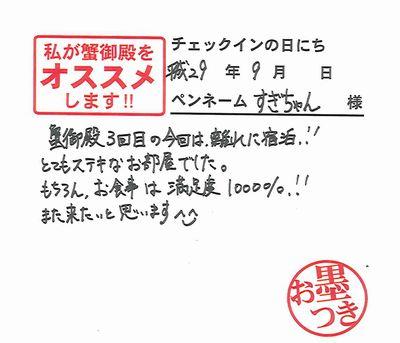 私が蟹御殿を
オススメ
します!!
チェックインの日にち
平成29 年 9 月 日
ペンネーム すぎちゃん 様
蟹御殿3回目の今回は、離れに宿泊!!
とてもステキなお部屋でした。
もちろん、お食事は満足度1000%!!
また来たいと思います^^
お墨つき